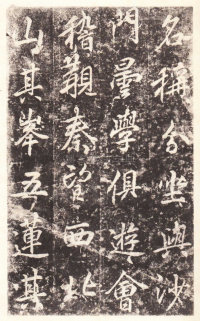 名稱分坐與沙
門曇學俱遊會
稽覲秦望西北
山其峯五蓮其